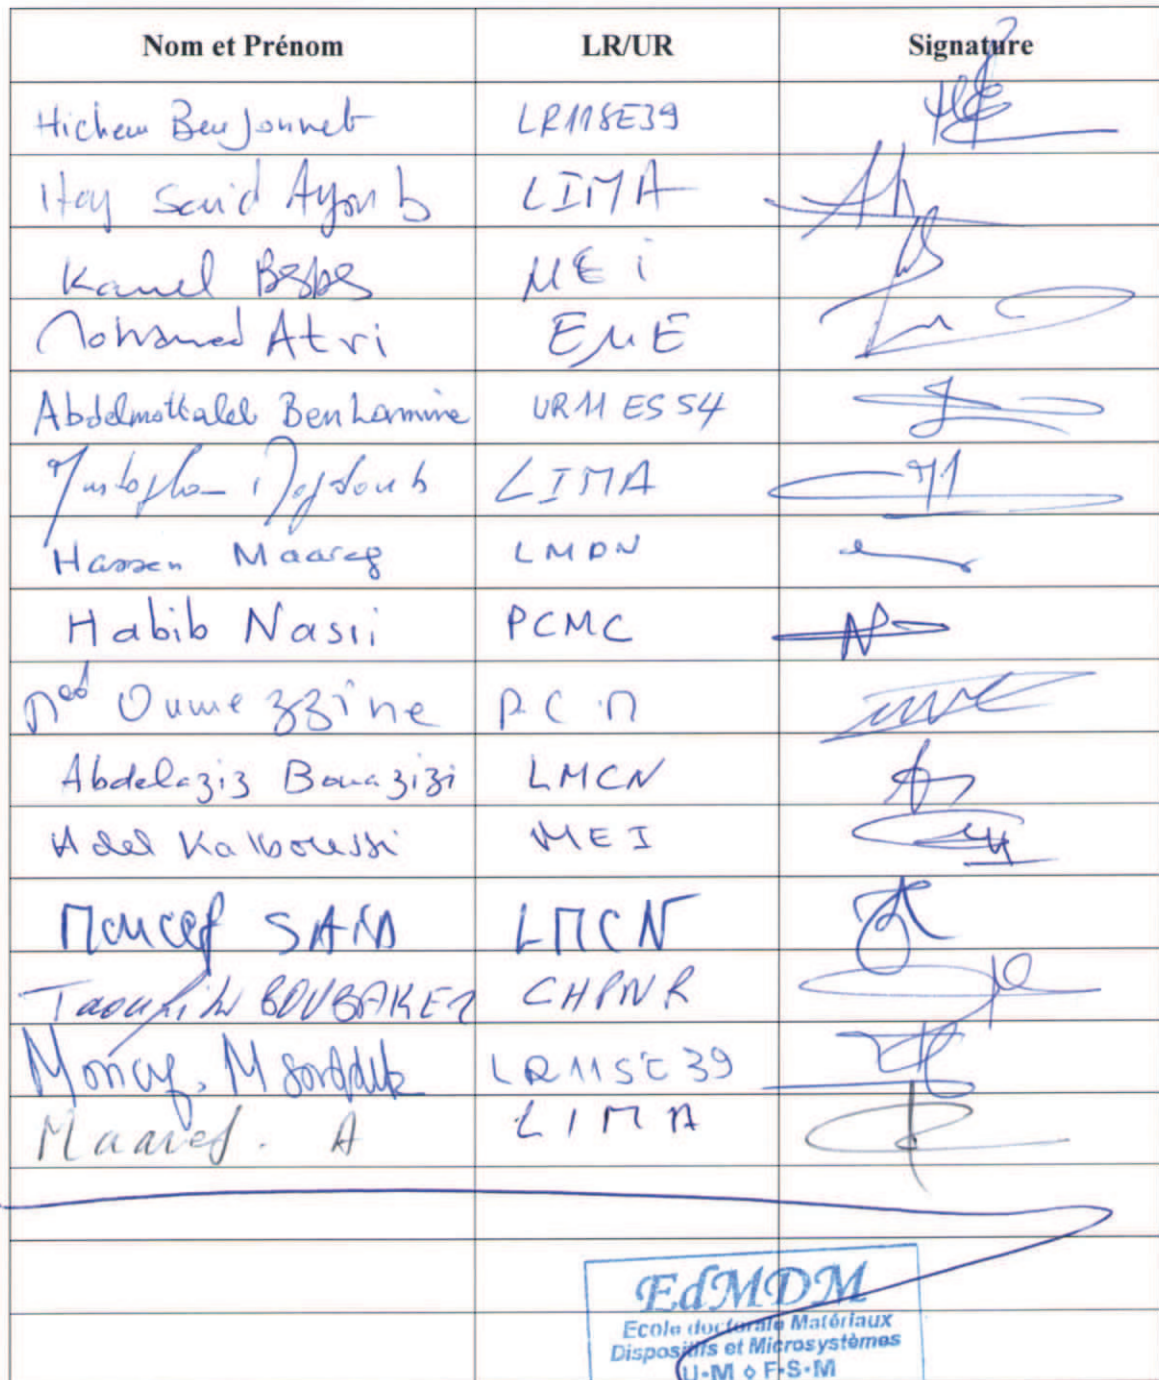 Nom et Prénom LR/UR Signature
Hichem Ben Jonnet LR11SE39
Haj Said Ayoub LIMA
Kamel Besbes MEI
Mohamed Atri EME
Abdelmottaleb Ben Lamine UR11 ES 54
Mustapha LIMA
Hassen Maaref LMON
Habib Nasri PCMC
Med Oumezzine PCM
Abdelaziz Bouazizi LMCN
Adel Kalboussi MEI
Moncef SAID LMCN
Taoufik BOUBAKER CHPNR
Moncef. LR11SE39
Maaref. A LIMA
EdMDM
Ecole doctorale Matériaux
Dispositifs et Microsystèmes
U-M ◊ F-S-M